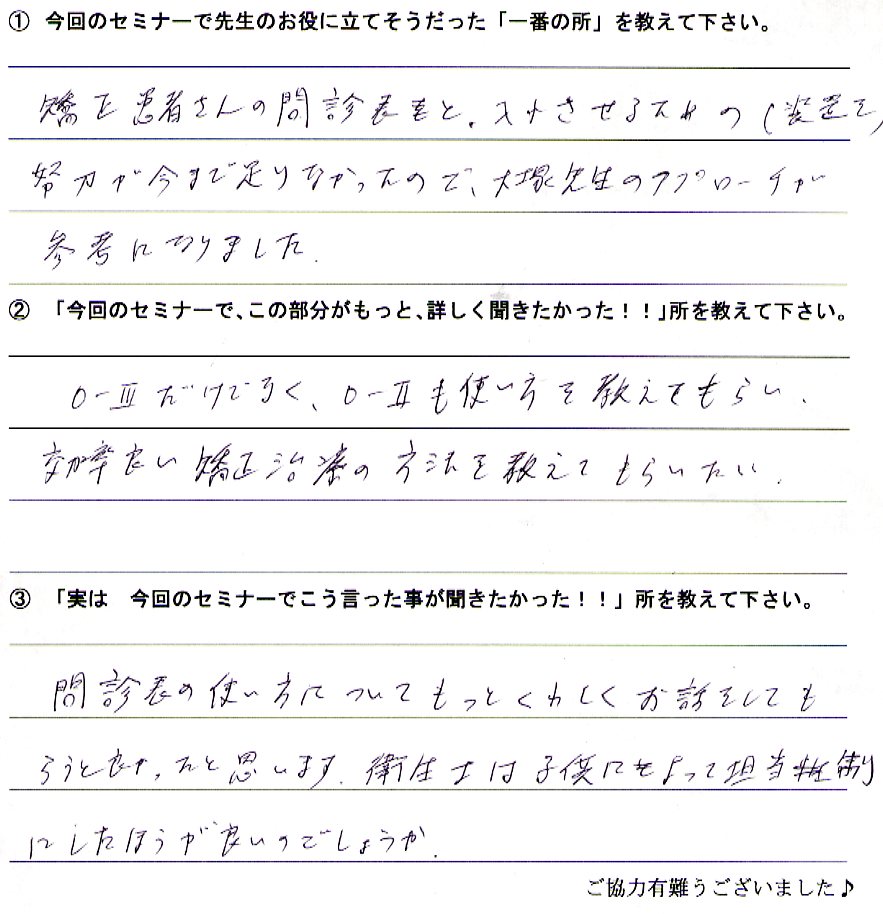 ① 今回のセミナーで先生のお役に立てそうだった「一番の所」を教えて下さい。
矯正患者さんの問診表をと、入れさせるための(装置を)
努力が今まで足りなかったので、大塚先生のアプローチが
参考になりました.
② 「今回のセミナーで、この部分がもっと、詳しく聞きたかった!!」所を教えて下さい。
O-Ⅲだけでなく、O-Ⅱも使い方を教えてもらい、
効率良い矯正治療の方法を教えてもらいたい.
③ 「実は 今回のセミナーでこう言った事が聞きたかった!!」所を教えて下さい。
問診表の使い方についてもっとくわしくお話をしても
らうと良かったと思います. 衛生士は子供によって担当制
にしたほうが良いのでしょうか.
ご協力有難うございました♪